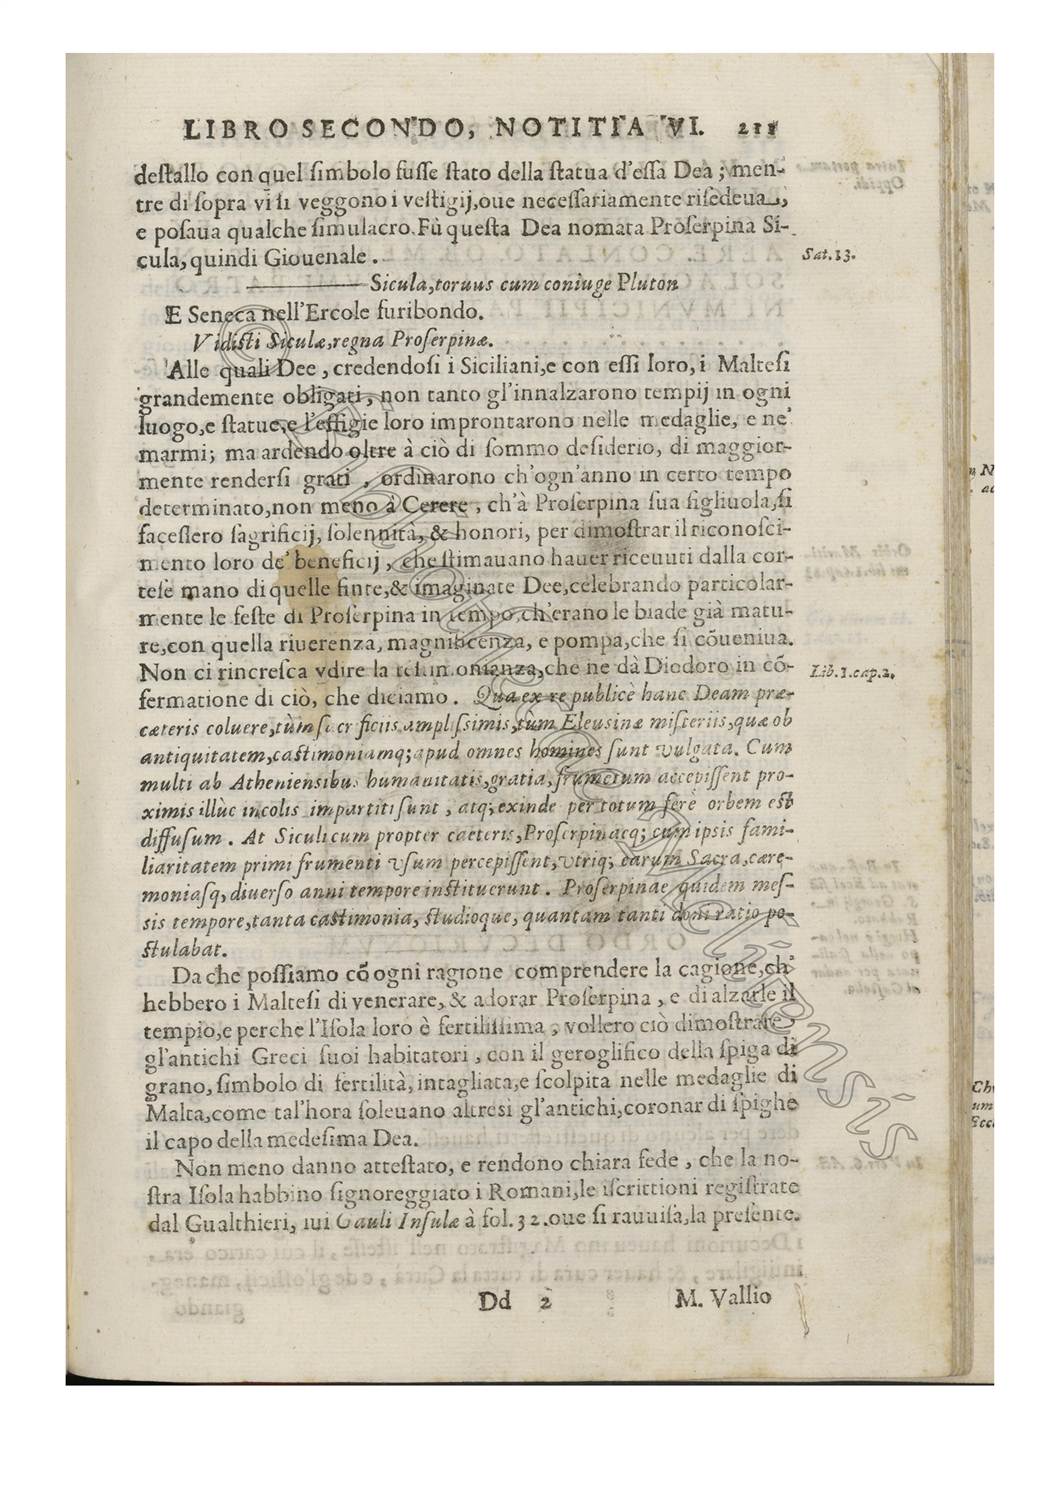 LIBRO SECONDO, NOTITIA VI. 211
deſtallo con quel ſimbolo fuſſe ſtato della ſtatua d'eſſa Dea; men-
tre di ſopra vi ſi veggono i veſtigij, oue neceſſariamente riſedeua,
e poſaua qualche ſimulacro. Fù queſta Dea nomata Proſerpina Si-
cula, quindi Giouenale.
Sat. 13.
Sicula, toruus cum coniuge Pluton
E Seneca nell'Ercole furibondo.
Vidiſti Siculæ, regna Proſerpinæ.
Alle quali Dee, credendoſi i Siciliani, e con eſſi loro, i Malteſi
grandemente obligati, non tanto gl'innalzarono tempij in ogni
luogo, e ſtatue, e l'effigie loro improntarono nelle medaglie, e ne'
marmi; ma ardendo oltre à ciò di ſommo deſiderio, di maggior-
mente renderſi grati, ordinarono ch'ogn'anno in certo tempo
determinato, non meno à Cerere, ch'à Proſerpina ſua figliuola, ſi
faceſſero ſagrificij, ſolennità, & honori, per dimoſtrar il riconoſci-
mento loro de' beneficij, che ſtimauano hauer riceuuti dalla cor-
teſe mano di quelle finte, & imaginate Dee, celebrando particolar-
mente le feſte di Proſerpina in tempo, ch'erano le biade già matu-
re, con quella riuerenza, magnificenza, e pompa, che ſi cōueniua.
Non ci rincreſca vdire la teſtimonianza, che ne dà Diodoro in cō-
Lib. 1. cap. 2.
fermatione di ciò, che diciamo. Qua ex re publicè hanc Deam præ-
cæteris coluere, tùm ſacrificiis ampliſsimis, tùm Eleuſinæ miſteriis, quæ ob
antiquitatem, caſtimoniamq; apud omnes homines ſunt vulgata. Cum
multi ab Athenienſibus humanitatis, gratia, frumetum accepiſſent pro-
ximis illùc incolis impartiti ſunt, atq; exinde per totum ferè orbem eſt
diffuſum. At Siculi cum propter cæteris, Proſerpinæcq; cum ipſis fami-
liaritatem primi frumenti vſum percepiſſent, vtriq; earum Sacra, cære-
moniaſq, diuerſo anni tempore inſtituerunt. Proſerpinae quidem meſ-
sis tempore, tanta caſtimonia, ſtudioque, quantam tanti doni ratio po-
ſtulabat.
Da che poſſiamo cō ogni ragione comprendere la cagione, ch'
hebbero i Malteſi di venerare, & adorar Proſerpina, e di alzarle il
tempio, e perche l'Iſola loro è fertiliſſima, vollero ciò dimoſtrare
gl'antichi Greci ſuoi habitatori, con il geroglifico della ſpiga di
grano, ſimbolo di fertilità, intagliata, e ſcolpita nelle medaglie di
Malta, come tal'hora ſoleuano altresì gl'antichi, coronar di ſpighe
il capo della medeſima Dea.
Non meno danno atteſtato, e rendono chiara fede, che la no-
ſtra Iſola habbino ſignoreggiato i Romani, le iſcrittioni regiſtrate
dal Gualthieri, iui Gauli Inſulæ à fol. 32. oue ſi rauuiſa, la preſente.
Dd 2 M. Vallio